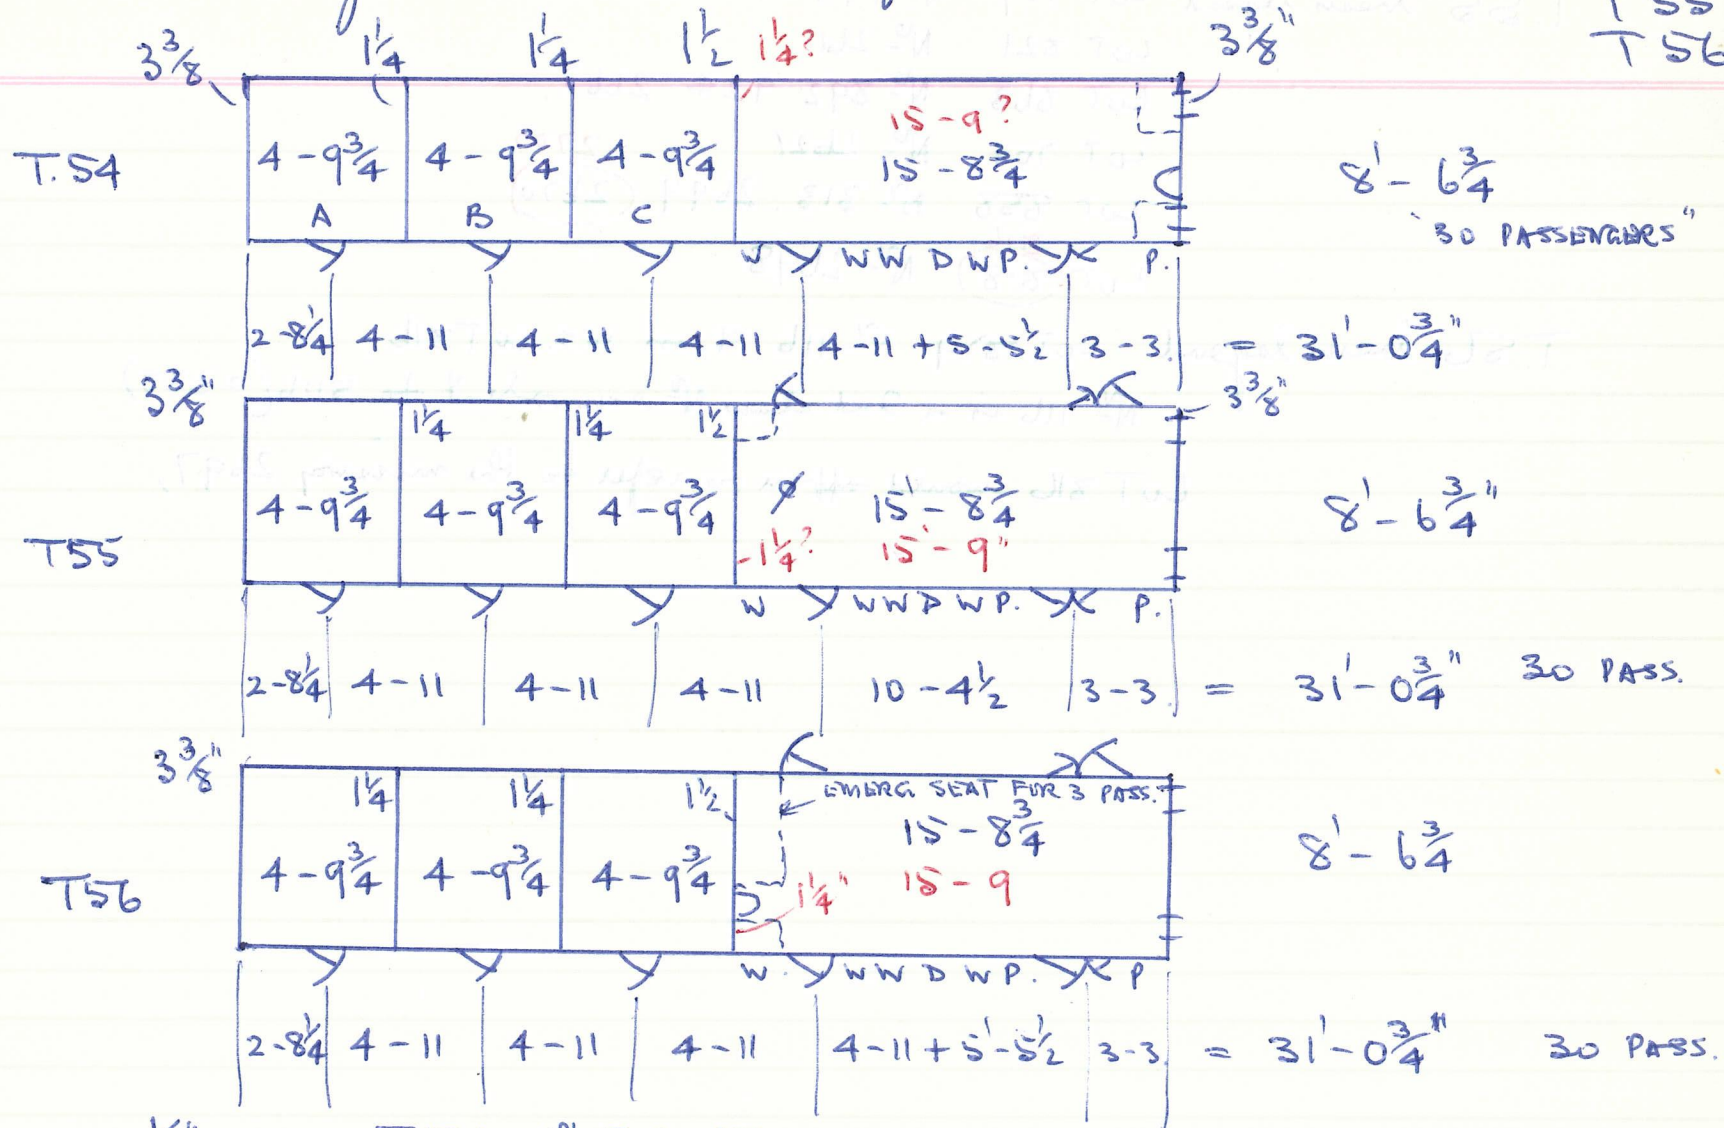 T 55
3 3/8 1 1/4 1 1/4 1 1/2 1 1/4? 3 3/8" T 56
15 - 9?
T.54 4 - 9 3/4 4 - 9 3/4 4 - 9 3/4 15 - 8 3/4 8' - 6 3/4
A B C "30 PASSENGERS"
W W W D W P. P.
2 - 8 1/4 4 - 11 4 - 11 4 - 11 4 - 11 + 5 - 5 1/2 3 - 3. = 31' - 0 3/4"
3 3/8" 3 3/8"
1 1/4 1 1/4 1 1/2
4 - 9 3/4 4 - 9 3/4 4 - 9 3/4 15' - 8 3/4 8' - 6 3/4"
T55 - 1 1/4? 15' - 9"
W W W D W P. P.
2 - 8 1/4 4 - 11 4 - 11 4 - 11 10 - 4 1/2 3 - 3. = 31' - 0 3/4" 30 PASS.
3 3/8"
1 1/4 1 1/4 1 1/2 EMERG. SEAT FOR 3 PASS.
15 - 8 3/4 8' - 6 3/4
T56 4 - 9 3/4 4 - 9 3/4 4 - 9 3/4 1 1/4" 15 - 9
W. W W D W P. P
2 - 8 1/4 4 - 11 4 - 11 4 - 11 4 - 11 + 5' - 5 1/2 3 - 3. = 31' - 0 3/4" 30 PASS.